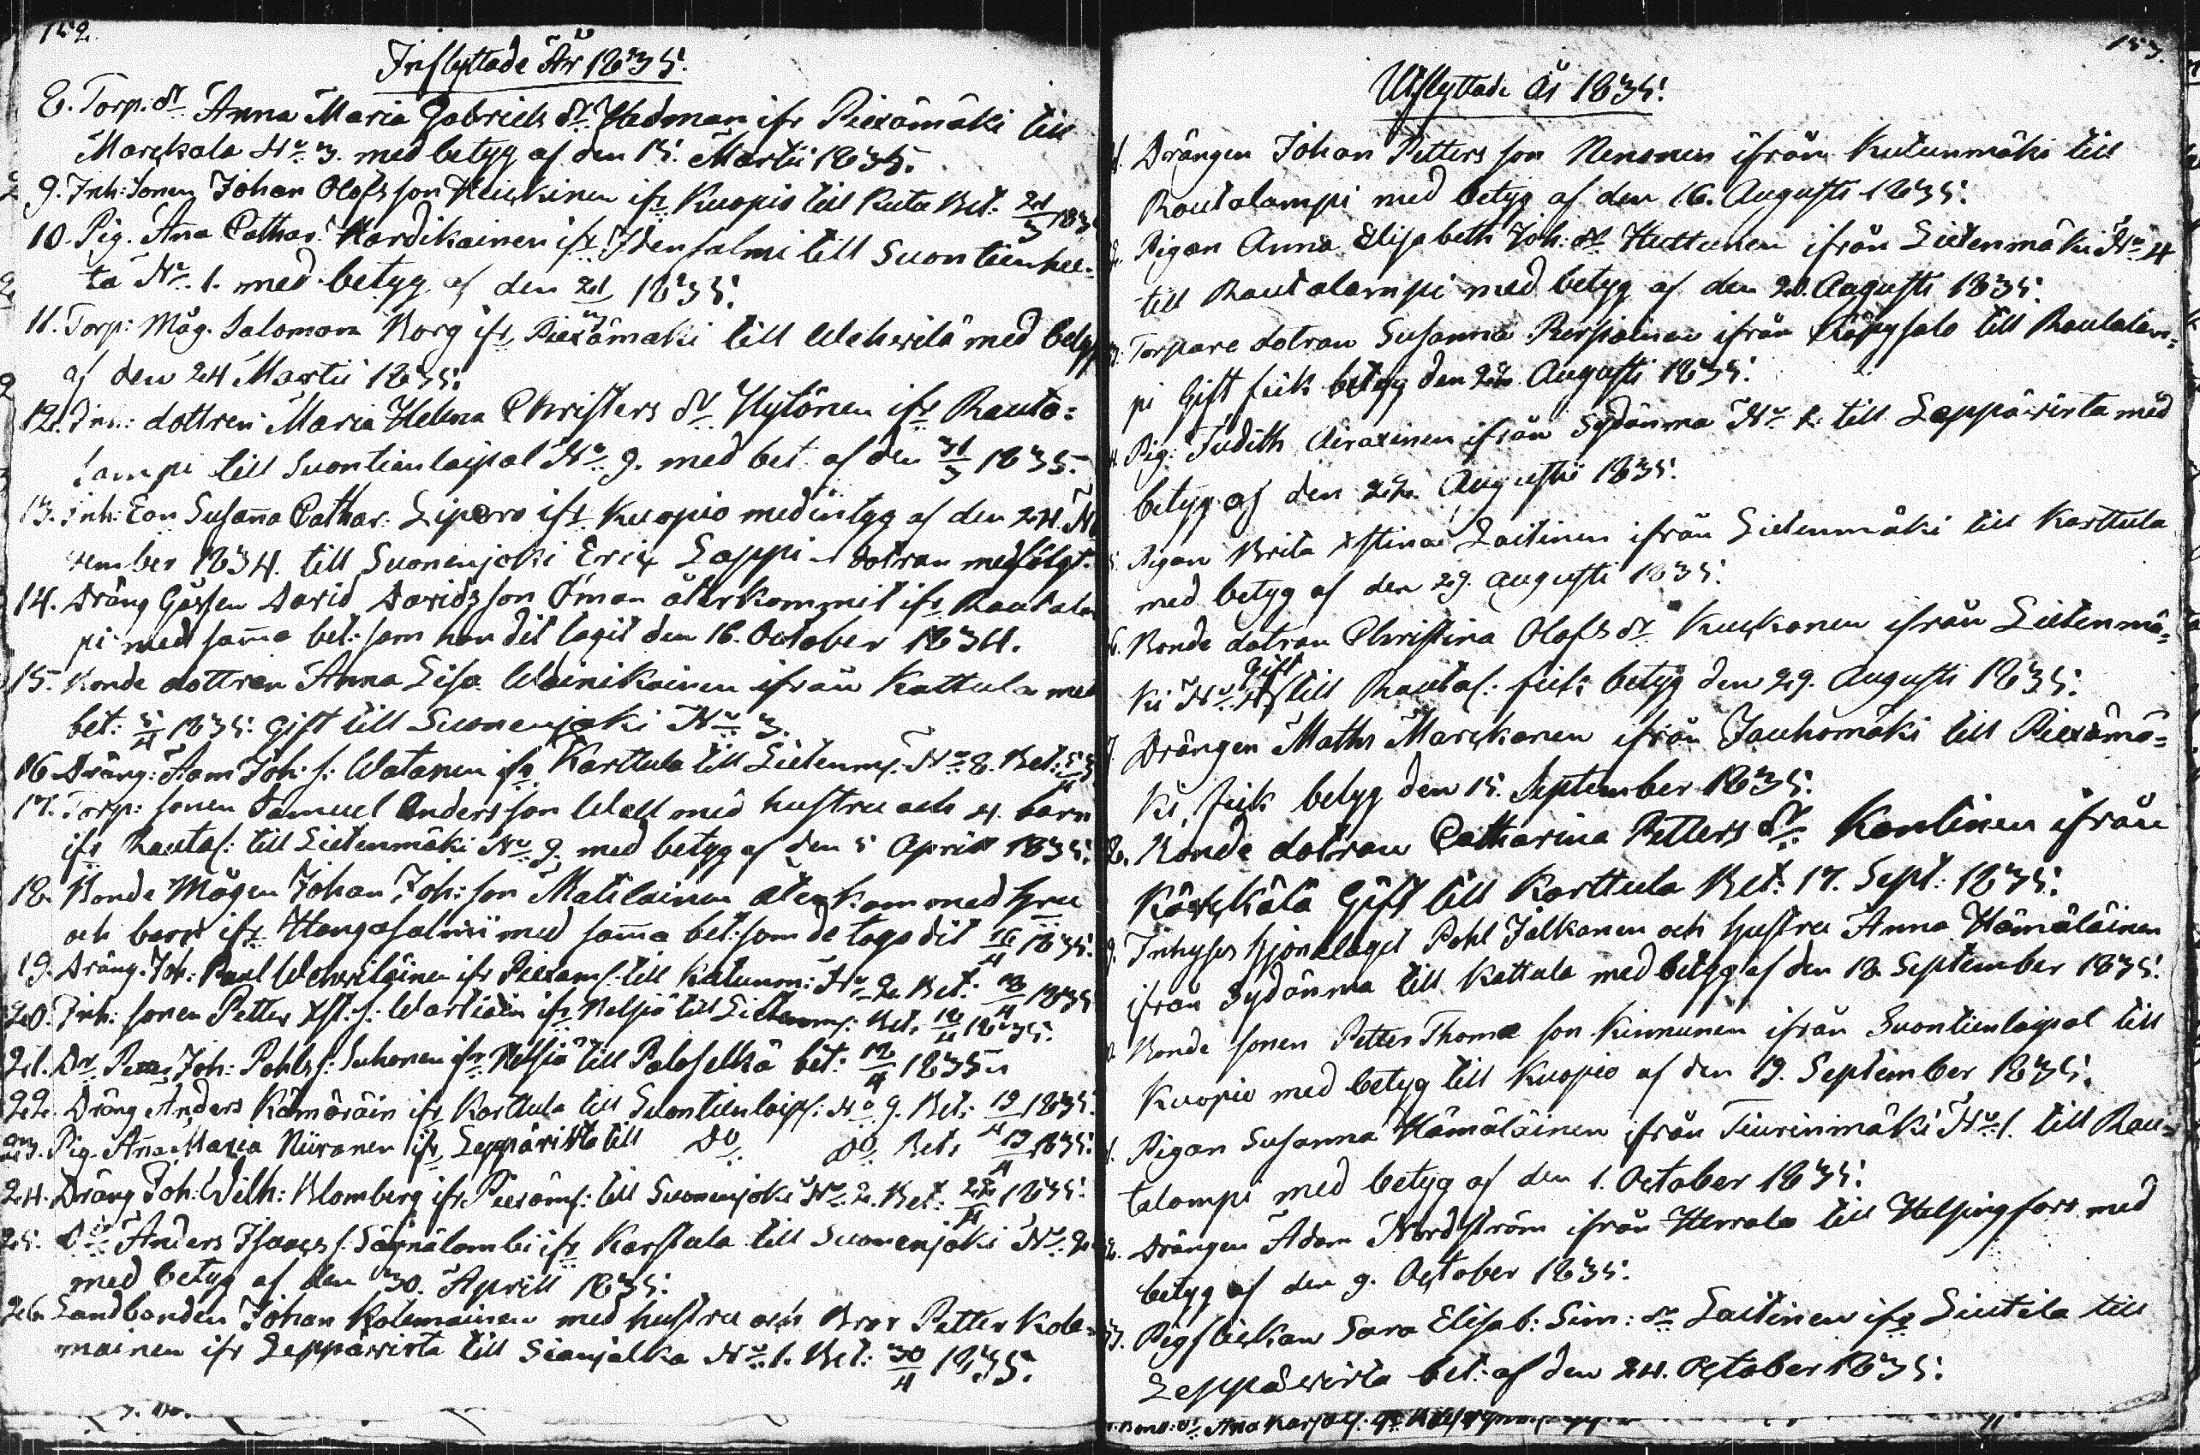 152.
Inflyttade År 1835.
8. Torp. dr Anna Maria Gabriels dr Hedman ifr Piexämäki till
Marckala No 3. med betyg af den 15. Martii 1835.
9. Inh: sonen Johan Olofs son Heickinen ifr Kuopio till Kuta Bet: 21/3 183
10. Pig. Aña Cathar: Kardikainen ifr Idensalmi till Suontienhul-
ta No 1. med betyg af den 21/3 1835.
11. Torp: Måg. Salomon Borg ifr Piexämäki till Wehvilä med betyg
af den 24 Martii 1835.
12. Inh: dottren Maria Helena Christers dr Hytönen ifr Rauta=
lampi till Suontienlaipal No 9. med bet. af den 31/3 1835.
13. Inh: Eon Susaña Cathar: Lipero ifr Kuopio med intyg af den 24. N
vember 1834. till Suonenjoki Eric Lappi dotran medfölgt.
14. Dräng Gåssen David Davids son Öman återkommit ifr Rautala
pi med sama bet: som han dit tagit den 16. October 1834.
15. Bonde dottren Anna Lisa Wäinikainen ifrån Kattula med
bet: 5/4 1835. gift till Suonenjoki No 3.
16. Dräng: Adam Joh: s: Watanen ifr Karttula till Lietenmäki No 8. Bet: 5/4
17. Torp: sonen Samuel Anders son Wall med hustru och 4. barn
ifr Rautal: till Lietenmäki No 9. med betyg af den 5 April 1835.
18. Bonde Mågen Johan Joh: son Matilainen återkom med hru
och barn ifr Hangasalmi med sama bet: som de togo dit 16/4 1835.
19. Dräng. Joh: Paul Wehviläinen ifr Piexäm: till Kutunm: No 2. Bet: 18/4 1835
20. Inh: sonen Petter Xst: s: Wartiain ifr Nilsiä till Lietenm: Bet. 12/4 1835.
21. Dr Joh: Pohls s: Suhonen ifr Nilsiä till Paloselkä bet: 12/4 1835
22. Dräng Anders Kämäräin ifr Karttula till Suontienlaip: No 9. Bet: 19/4 1835.
23. Pig. Aña Maria Niiranen ifr Leppävirta till Do Do Bet. 19/4 1835.
24. Dräng Joh: Wilh: Blomberg ifr Piexäm: till Suonenjoki No 2. Bet: 1835.
25. Do Anders Isaacs s: ifr Karstula till Suonenjoki No 2
med betyg af den 30. Aprill 1835.
26. Landbonden Johan Kolemainen med hustru och Bror Petter Kole-
mainen ifr Leppävirta till Sianjalka No 1. Bet: 30/4 1835.
153.
Utflyttade År 1835.
1. Drängen Johan Petters son Nenonen ifrån Kutunmäki till
Rautalampi med betyg af den 16. Augusti 1835.
2. Pigan Anna Elisabeth Joh: dr Huttunen ifrån Lietenmäki No 4
till Rautalampi med betyg af den 20. Augusti 1835.
3. Torpare dotran Susanna ifrån Käpysalo till Rautalam=
pi Gift fick betyg den 22. Augusti 1835.
4. Pig: Judith Airaxinen ifrån Sydänma No 1. till Leppävirta med
betyg af den Augusti 1835.
5. Pigan Brita Xstina Laitinen ifrån Lietenmäki till Karttula
med betyg af den 29. Augusti 1835.
6. Bonde dotran Christina Olofs dr Kuckonen ifrån Lietenmä=
ki No 4 Gift till Rautal: fick betyg den 29. Augusti 1835.
7. Drängen Maths Marckanen ifrån Jauhomäki till Piexämä=
ki, fick betyg den 15. September 1835.
8. Bonde dotran Catharina Petters dr Kontinen ifrån
Kärckälä Gift till Karttula Bet: 17. Sept: 1835.
9. Inhyses hjonelaget Pohl Jalkanen och hustru Anna Hämäläinen
ifrån Sydänma till Kattula med betyg af den 18 September 1835.
10. Bonde sonen Petter Thomæ son Kinnunen ifrån Suontienlaipal till
Kuopio med betyg till Kuopio af den 19. September 1835.
11. Pigan Susanna Hämäläinen ifrån Tiurinmäki No 1. till Rau-
talampi med betyg af den 1. October 1835.
12. Drängen Adam Nordström ifrån Herrala till Helsingfors med
betyg af den 9. October 1835.
13. Pigflickan Sara Elisab: Sim: dr Laitinen ifr Liutila till
Leppävirta bet: af den 24. October 1835.